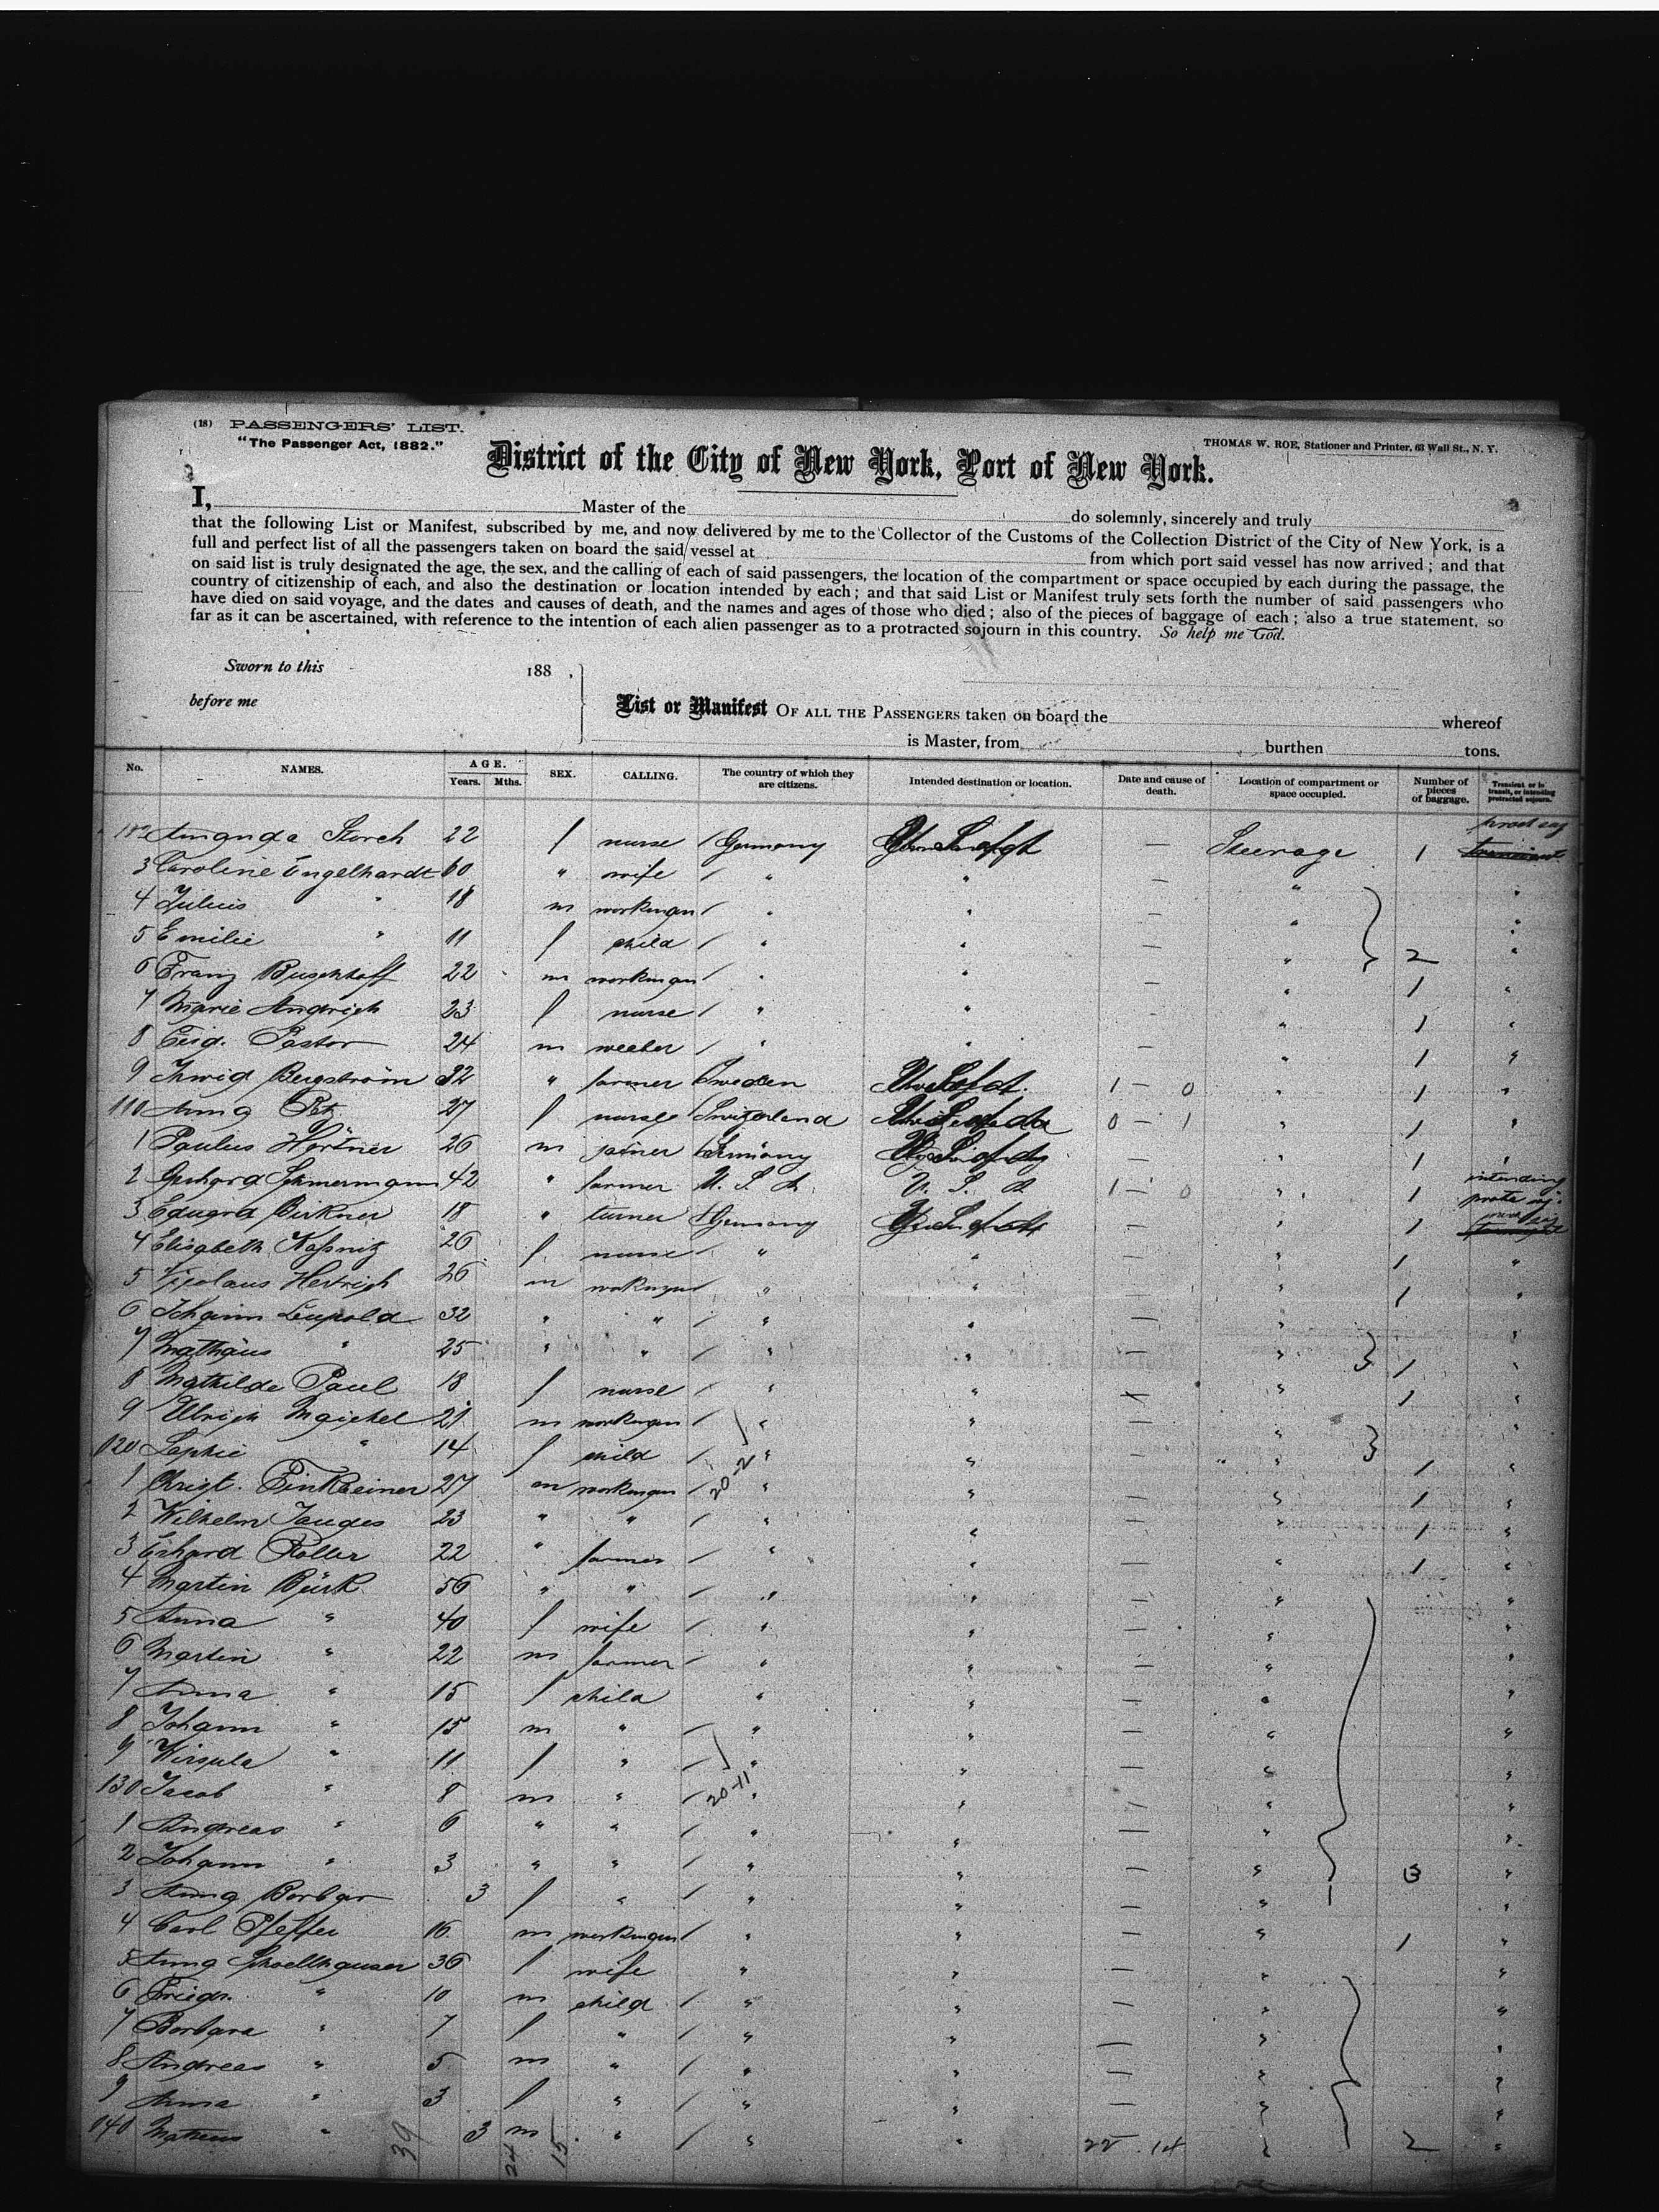 (18) PASSENGERS' LIST.
"The Passenger Act, 1882."
THOMAS W. ROE, Stationer and Printer, 63 Wall St., N. Y.
District of the City of New York, Port of New York.
I, Master of the do solemnly, sincerely and truly
that the following List or Manifest, subscribed by me, and now delivered by me to the Collector of the Customs of the Collection District of the City of New York, is a
full and perfect list of all the passengers taken on board the said vessel at from which port said vessel has now arrived; and that
on said list is truly designated the age, the sex, and the calling of each of said passengers, the location of the compartment or space occupied by each during the passage, the
country of citizenship of each, and also the destination or location intended by each; and that said List or Manifest truly sets forth the number of said passengers who
have died on said voyage, and the dates and causes of death, and the names and ages of those who died; also of the pieces of baggage of each; also a true statement, so
far as it can be ascertained, with reference to the intention of each alien passenger as to a protracted sojourn in this country. So help me God.
Sworn to this 188 .
before me
List or Manifest OF ALL THE PASSENGERS taken on board the whereof
is Master, from burthen tons.
No. NAMES. AGE. Years. Mths. SEX. CALLING. The country of which they are citizens. Intended destination or location. Date and cause of death. Location of compartment or space occupied. Number of pieces of baggage. Transient or in transit, or intending protracted sojourn.
Amanda Storch 22 f nurse / Germany — Steerage 1
3 Caroline Engelhardt 60 " wife / " " — "
4 Julius " 18 m workingm / " " — "
5 Emilie " 11 f child / " " — "
6 Franz Buschhoff 22 m workingm / " " — " 2 "
7 Marie 23 f nurse / " " — " 1 "
8 Pastor 24 m / " " — " 1 "
9 Bergström 32 " farmer Sweden 1 — 0 " 1 "
110 Anna 27 f nurse Switzerland 0 — 1 " 1 "
1 Paulus Hörtner 26 m joiner / Germany — " 1 "
2 Gerhard 42 " farmer U. S. A U. S. A 1 — 0 " 1 intending
3 Eduard Birkner 18 " turner / Germany — " 1
4 Elisabeth 26 f nurse / " " — " 1 "
5 Nicolaus 26 m workingm / " " — " 1 "
6 Johann Leupold 32 " " / " " — " "
7 Mathäus " 25 " " / " " — " 1 "
8 Mathilde Paul 18 f nurse / " " — " 1 "
9 Ulrich Maichel 21 m workingm / " " — " "
120 Sophie " 14 f child / " " — " 1 "
1 Christ. Finkbeiner 27 m workingm / " " — " 1 "
2 Wilhelm 23 " " / " " — " 1 "
3 Erhard Roller 22 " farmer / " " — " 1 "
4 Martin Bürk 56 " " / " " — " "
5 Anna " 40 f wife / " " — " "
6 Martin " 22 m farmer / " " — " "
7 Anna " 15 f child " " — " "
8 Johann " 15 m " / " " — " "
9 " 11 f " / " " — " "
130 Jacob " 8 m " / " " — " "
1 Andreas " 6 " " / " " — " "
2 Johann " 3 " " / " " — " 3 "
3 Anna 3 f " / " " — " "
4 Carl Pfeffer 16 m workingm / " " — " 1 "
5 Anna 36 f wife " " — " "
6 Friedr. " 10 m child / " " — " "
7 Barbara " 7 f " / " " — " "
8 Andreas " 5 m " / " " — " "
9 Anna " 3 f " / " " — " "
140 " 3 m " / " " " 2 "
39 24 15 22 14
20-2
20-11